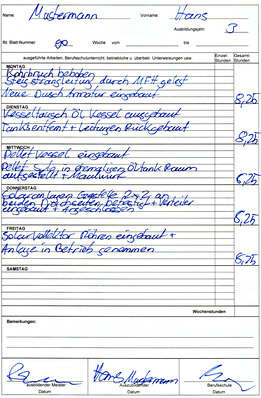 Name Mustermann Vorname Hans
Ausbildungsjahr: 3
Nr. Blatt-Nummer 90 Woche vom bis
ausgeführte Arbeiten, Berufsschulunterricht, betriebliche u. überbetr. Unterweisungen usw. Einzel-Stunden Gesamt-Stunden
MONTAG
Rohrbruch behoben
Steigstrangleitung durch MFH gelegt
Neue Duscharmatur eingebaut 8,25
DIENSTAG
Kesseltausch Öl Kessel ausgebaut
Tanks entfernt + Leitungen Rückgebaut 8,25
MITTWOCH
Pellet Kessel eingebaut
Pellet Silo in ehemaligen Öltank Raum
aufgestellt + Maulwurf 6,25
DONNERSTAG
Solaranlagen Gestelle 2x2 an
beiden Dachseiten befestigt + Verteiler
eingebaut + Angeschlossen 6,25
FREITAG
Solar Kollektor Röhren eingebaut +
Anlage in Betrieb genommen 8,25
SAMSTAG
Wochenstunden
Bemerkungen:
Hans Mustermann
Ausbildender Meister Auszubildender Berufsschule
Datum Datum Datum